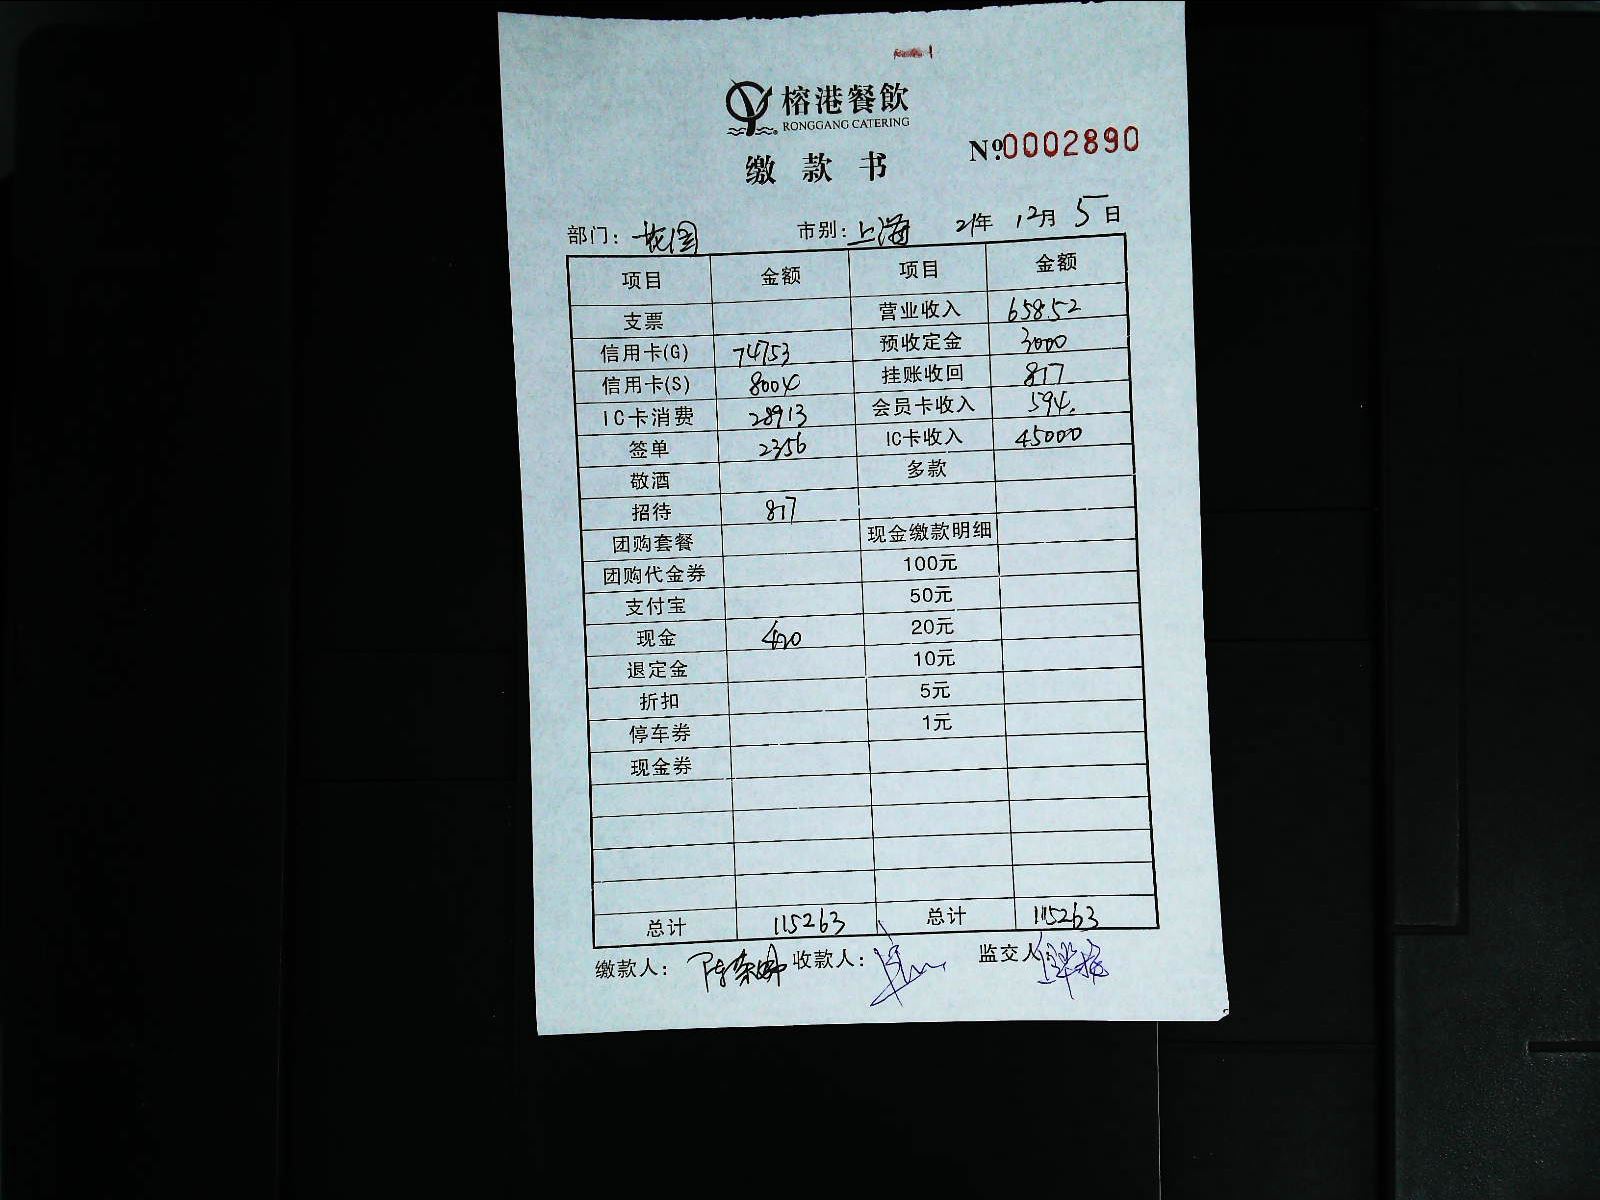 榕港餐飲
RONGGANG CATERING
缴款书 Nº.0002890
部门：花园 市别：上海 21年 12月 5日
项目 金额 项目 金额
支票 营业收入 65852
信用卡(G) 74753 预收定金 3000
信用卡(S) 8004 挂账收回 817
IC卡消费 28913 会员卡收入 594.
签单 2356 IC卡收入 45000
敬酒 多款
招待 817
团购套餐 现金缴款明细
团购代金券 100元
支付宝 50元
现金 420 20元
退定金 10元
折扣 5元
停车券 1元
现金券
总计 115263 总计 115263
缴款人： 收款人： 监交人